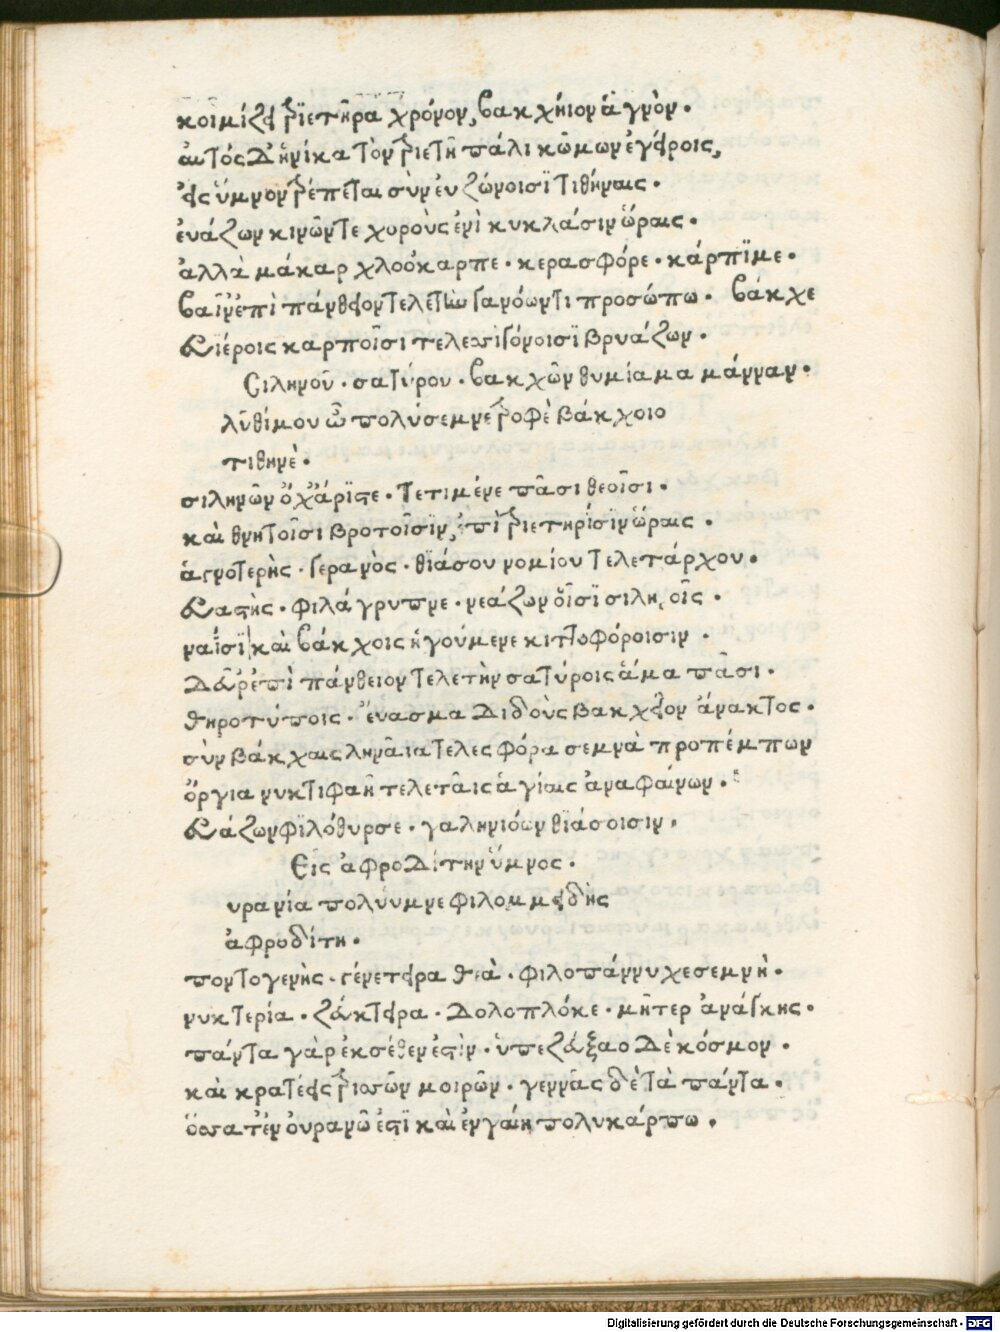 κοιμίζει τριετῆρα χρόνον, βακχήιον ἁγνὸν.
αυτός δ' ἡνίκα τὸν τριετῆ πάλι κῶμον ἐγείροις,
εἰς ὕμνον τρέπεται σὺν ἐυζώνοισϊ τιθήναις.
ἐυάζων κινῶντε χορούς ἐνὶ κυκλάσιν ὥραις.
ἀλλὰ μάκαρ χλοόκαρπε. κερασφόρε. κάρπϊμε.
βαῖν' ἐπὶ πάνθειον τελετὴν γανόωντι προσώπω. βάκχε
εὐϊέροις καρποῖσι τελεσσιγόνοισϊ βρυάζων.
Σιληνοῦ. σατύρου. βακχῶν θυμίαμα μάνναν.
λῦθίμου ὦ πολύσεμνε τροφὲ βάκχοιο
τιθηνὲ.
σιληνῶν ὄχ' ἄριστε. τετιμένε πᾶσι θεοῖσι.
καὶ θνητοῖσι βροτοῖσιν, ἐπὶ τριετηρίσιν ὥραις.
ἁγνοτερὴς. γεραρὸς. θϊάσου νομίου τελετάρχου.
εὐαστὴς. φιλάγρυπνε. νεάζων οἷσϊ σιληνοῖς.
ναΐσϊ καὶ βάκχοις ἡγούμενε κιττοφόροισιν.
δεῦρ' ἐπὶ πάνθειον τελετὴν σατύροις ἅμα πᾶσι.
θηροτύποις. ἔυασμα διδοὺς βακχείου ἄνακτος.
σὺν βάκχαις ληναῖα τελεσφόρα σεμνὰ προπέμπων
ὄργια νυκτιφαῆ τελεταῖς ἁγίαις ἀναφαίνων.
εὐάζων φϊλόθυρσε. γαληνιόων θϊάσοισιν.
Εἰς ἀφροδίτην ὕμνος.
υρανία πολύυμνε φιλομμειδὴς
ἀφροδίτη.
ποντογενὴς. γενετειρα θεὰ. φιλοπάννυχε σεμνὴ.
νυκτερία. ζεύκτειρα. δολοπλόκε. μῆτερ ἀνάγκης.
πάντα γὰρ ἐκ σέθεν ἐστὶν. ὑπεζεύξαο δὲ κόσμον.
καὶ κρατέεις τρισσῶν μοιρῶν. γεννᾷς δὲ τὰ πάντα.
ὅσσα τ' ἐν ουρανῶ ἐστϊ καὶ ἐν γαίη πολυκάρπω.
Digitalisierung gefördert durch die Deutsche Forschungsgemeinschaft - DFG